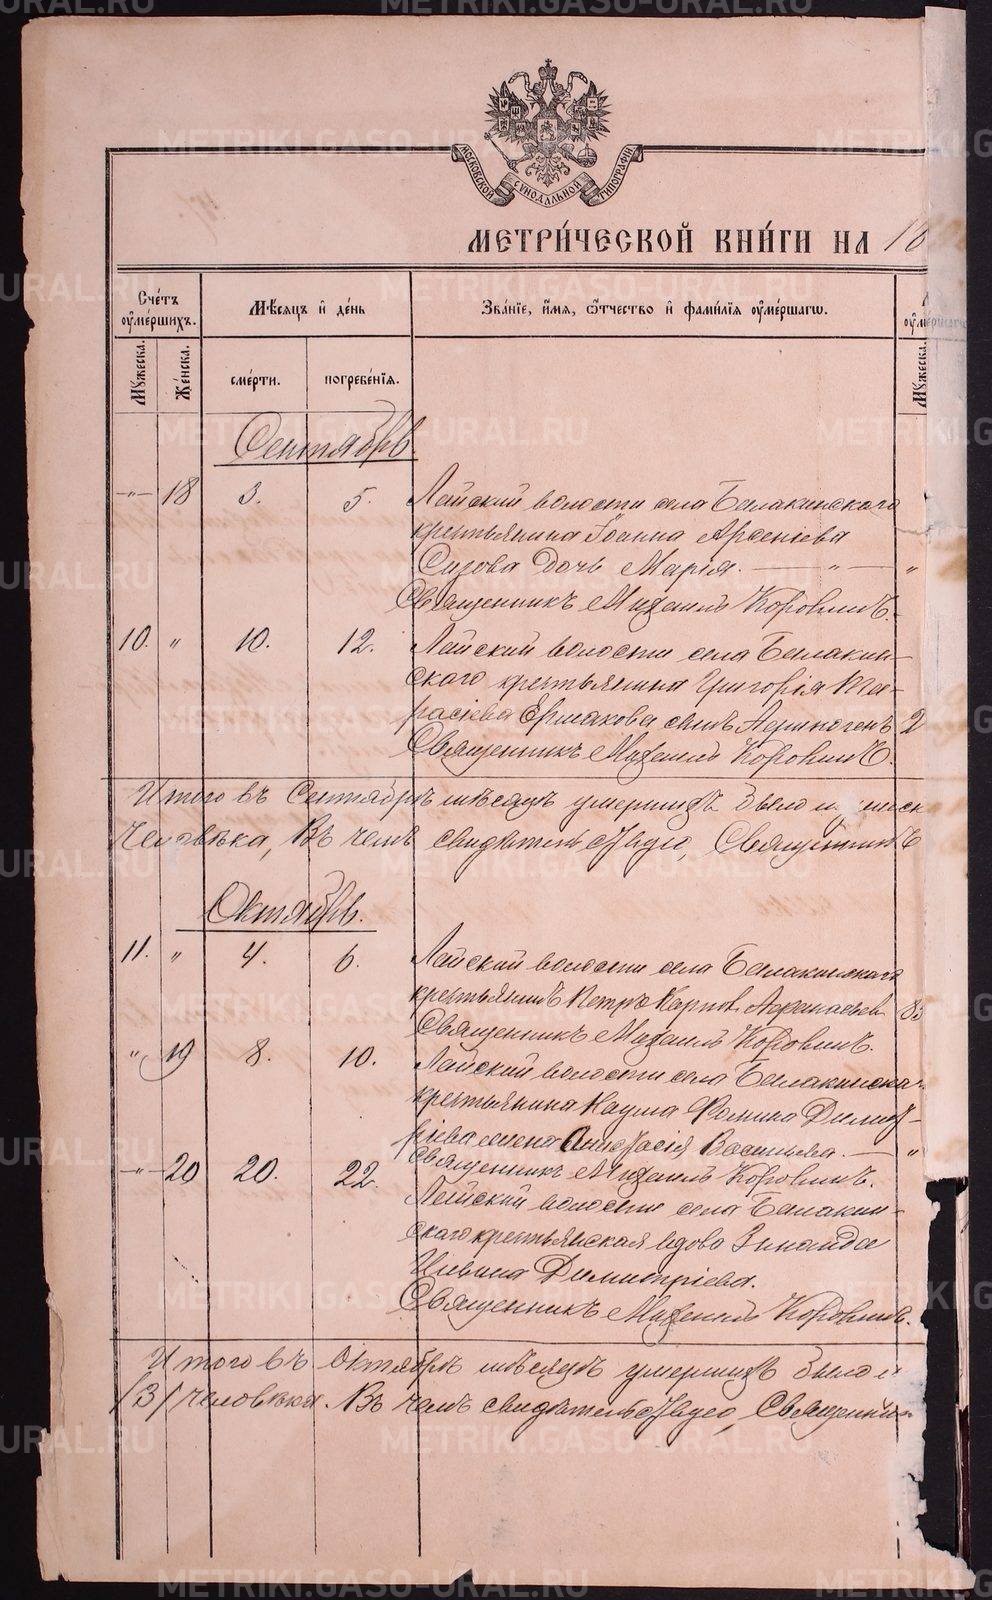 МОСКОВСКОЙ СѴНОДАЛЬНОЙ ТИПОГРАФІИ
МЕТРИ́ЧЕСКОЙ КНИ́ГИ НА 18
Сче́тъ оуме́ршихъ.
Мѣ́сяцъ и҆ де́нь
Зва́нїе, и҆́мя, ѻ҆́тчество и҆ фами́лїя оуме́ршагѡ.
Му́жеска.
Же́нска.
сме́рти.
погребе́нїя.
Му́жеска.
Сентябрь
-"- 18 3. 5. Лайской волости села Балакинского
крестьянина Іоанна Арсеніева
Сизова дочь Марія. — " — "
Священникъ Михаилъ Коровинъ.
10. " 10. 12. Лайской волости села Балакин-
ского крестьянина Григорія Та-
расіева Ермакова сынъ Аѳиногенъ 2
Священникъ Михаилъ Коровинъ.
Итого въ Сентябрѣ мѣсяцѣ умершихъ было
человѣка, Въ чемъ свидѣтельствую, Священникъ
Октябрь.
11. " 4. 6. Лайской волости села Балакинского
крестьянинъ Петръ Карпов Афанасьев
Священникъ Михаилъ Коровинъ.
" 19 8. 10. Лайской волости села Балакинска
крестьянина Наума Фомина Димит-
ріева жена Анастасія Васильева. — "
Священникъ Михаилъ Коровинъ.
-"- 20 20. 22. Лайской волости села Балакин-
ского крестьянская вдова Зинаида
Ильина Димитріева.
Священникъ Михаилъ Коровинъ.
Итого въ Октябрѣ мѣсяцѣ умершихъ было
/3/ человѣка. Въ чемъ свидѣтельствую, Священникъ
METRIKI.GASO-URAL.RU